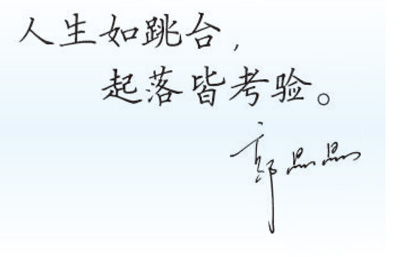 人生如跳台，
起落皆考验。
郭晶晶